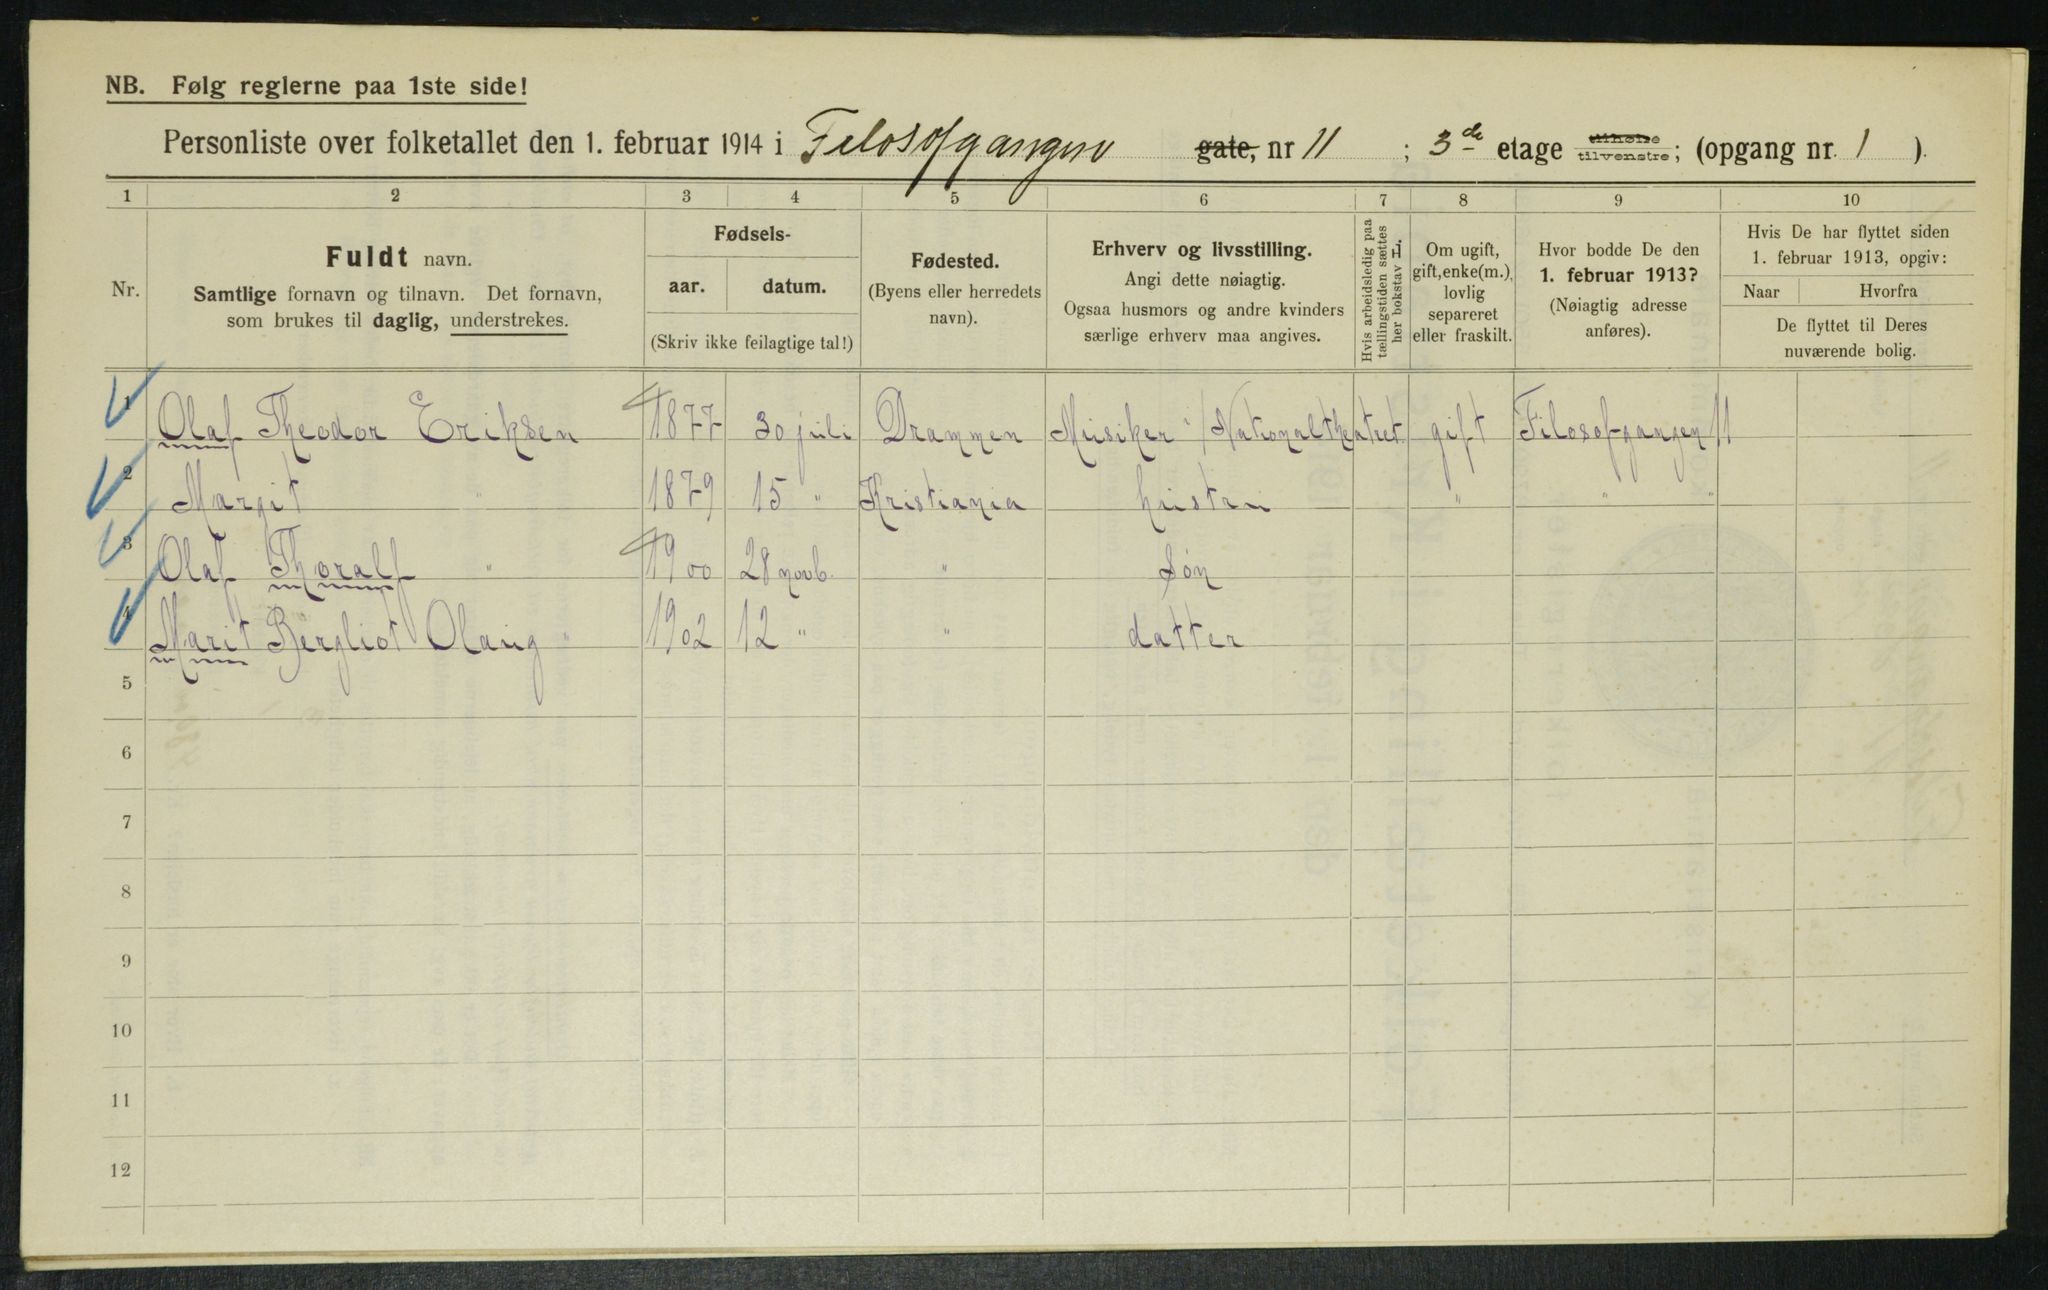 NB. Følg reglerne paa 1ste side!
Personliste over folketallet den 1. februar 1914 i Filosofgangen gate, nr 11 ; 3de etage tilhøire tilvenstre; (opgang nr. 1 ).
1 2 3 4 5 6 7 8 9 10
Nr.
Fuldt navn.
Samtlige fornavn og tilnavn. Det fornavn,
som brukes til daglig, understrekes.
Fødsels-
aar. datum.
(Skriv ikke feilagtige tal!)
Fødested.
(Byens eller herredets
navn).
Erhverv og livsstilling.
Angi dette nøiagtig.
Ogsaa husmors og andre kvinders
særlige erhverv maa angives.
Hvis arbeidsledig paa
tællingstiden sættes
her bokstav L.
Om ugift,
gift, enke(m.),
lovlig
separeret
eller fraskilt.
Hvor bodde De den
1. februar 1913?
(Nøiagtig adresse
anføres).
Hvis De har flyttet siden
1. februar 1913, opgiv:
Naar Hvorfra
De flyttet til Deres
nuværende bolig.
1 Olaf Theodor Eriksen 1877 30 juli Drammen Musiker v/Nationaltheatret gift Filosofgangen 11
2 Margit " 1879 15 " Kristiania hustru " " "
3 Olaf Thoralf " 1900 28 novb. " Søn
4 Marit Bergliot Olaug 1902 12 " " datter
5
6
7
8
9
10
11
12